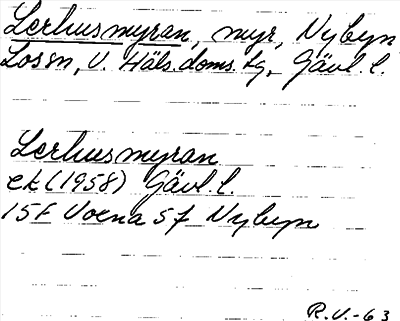 Lerhusmyran, myr, Nybyn
Lossn, V. Häls. doms. tg, Gävl. l.
Lerhusmyran
ek (1958) Gävl. l.
15F Voxna 5f Nybyn
R.V.-63